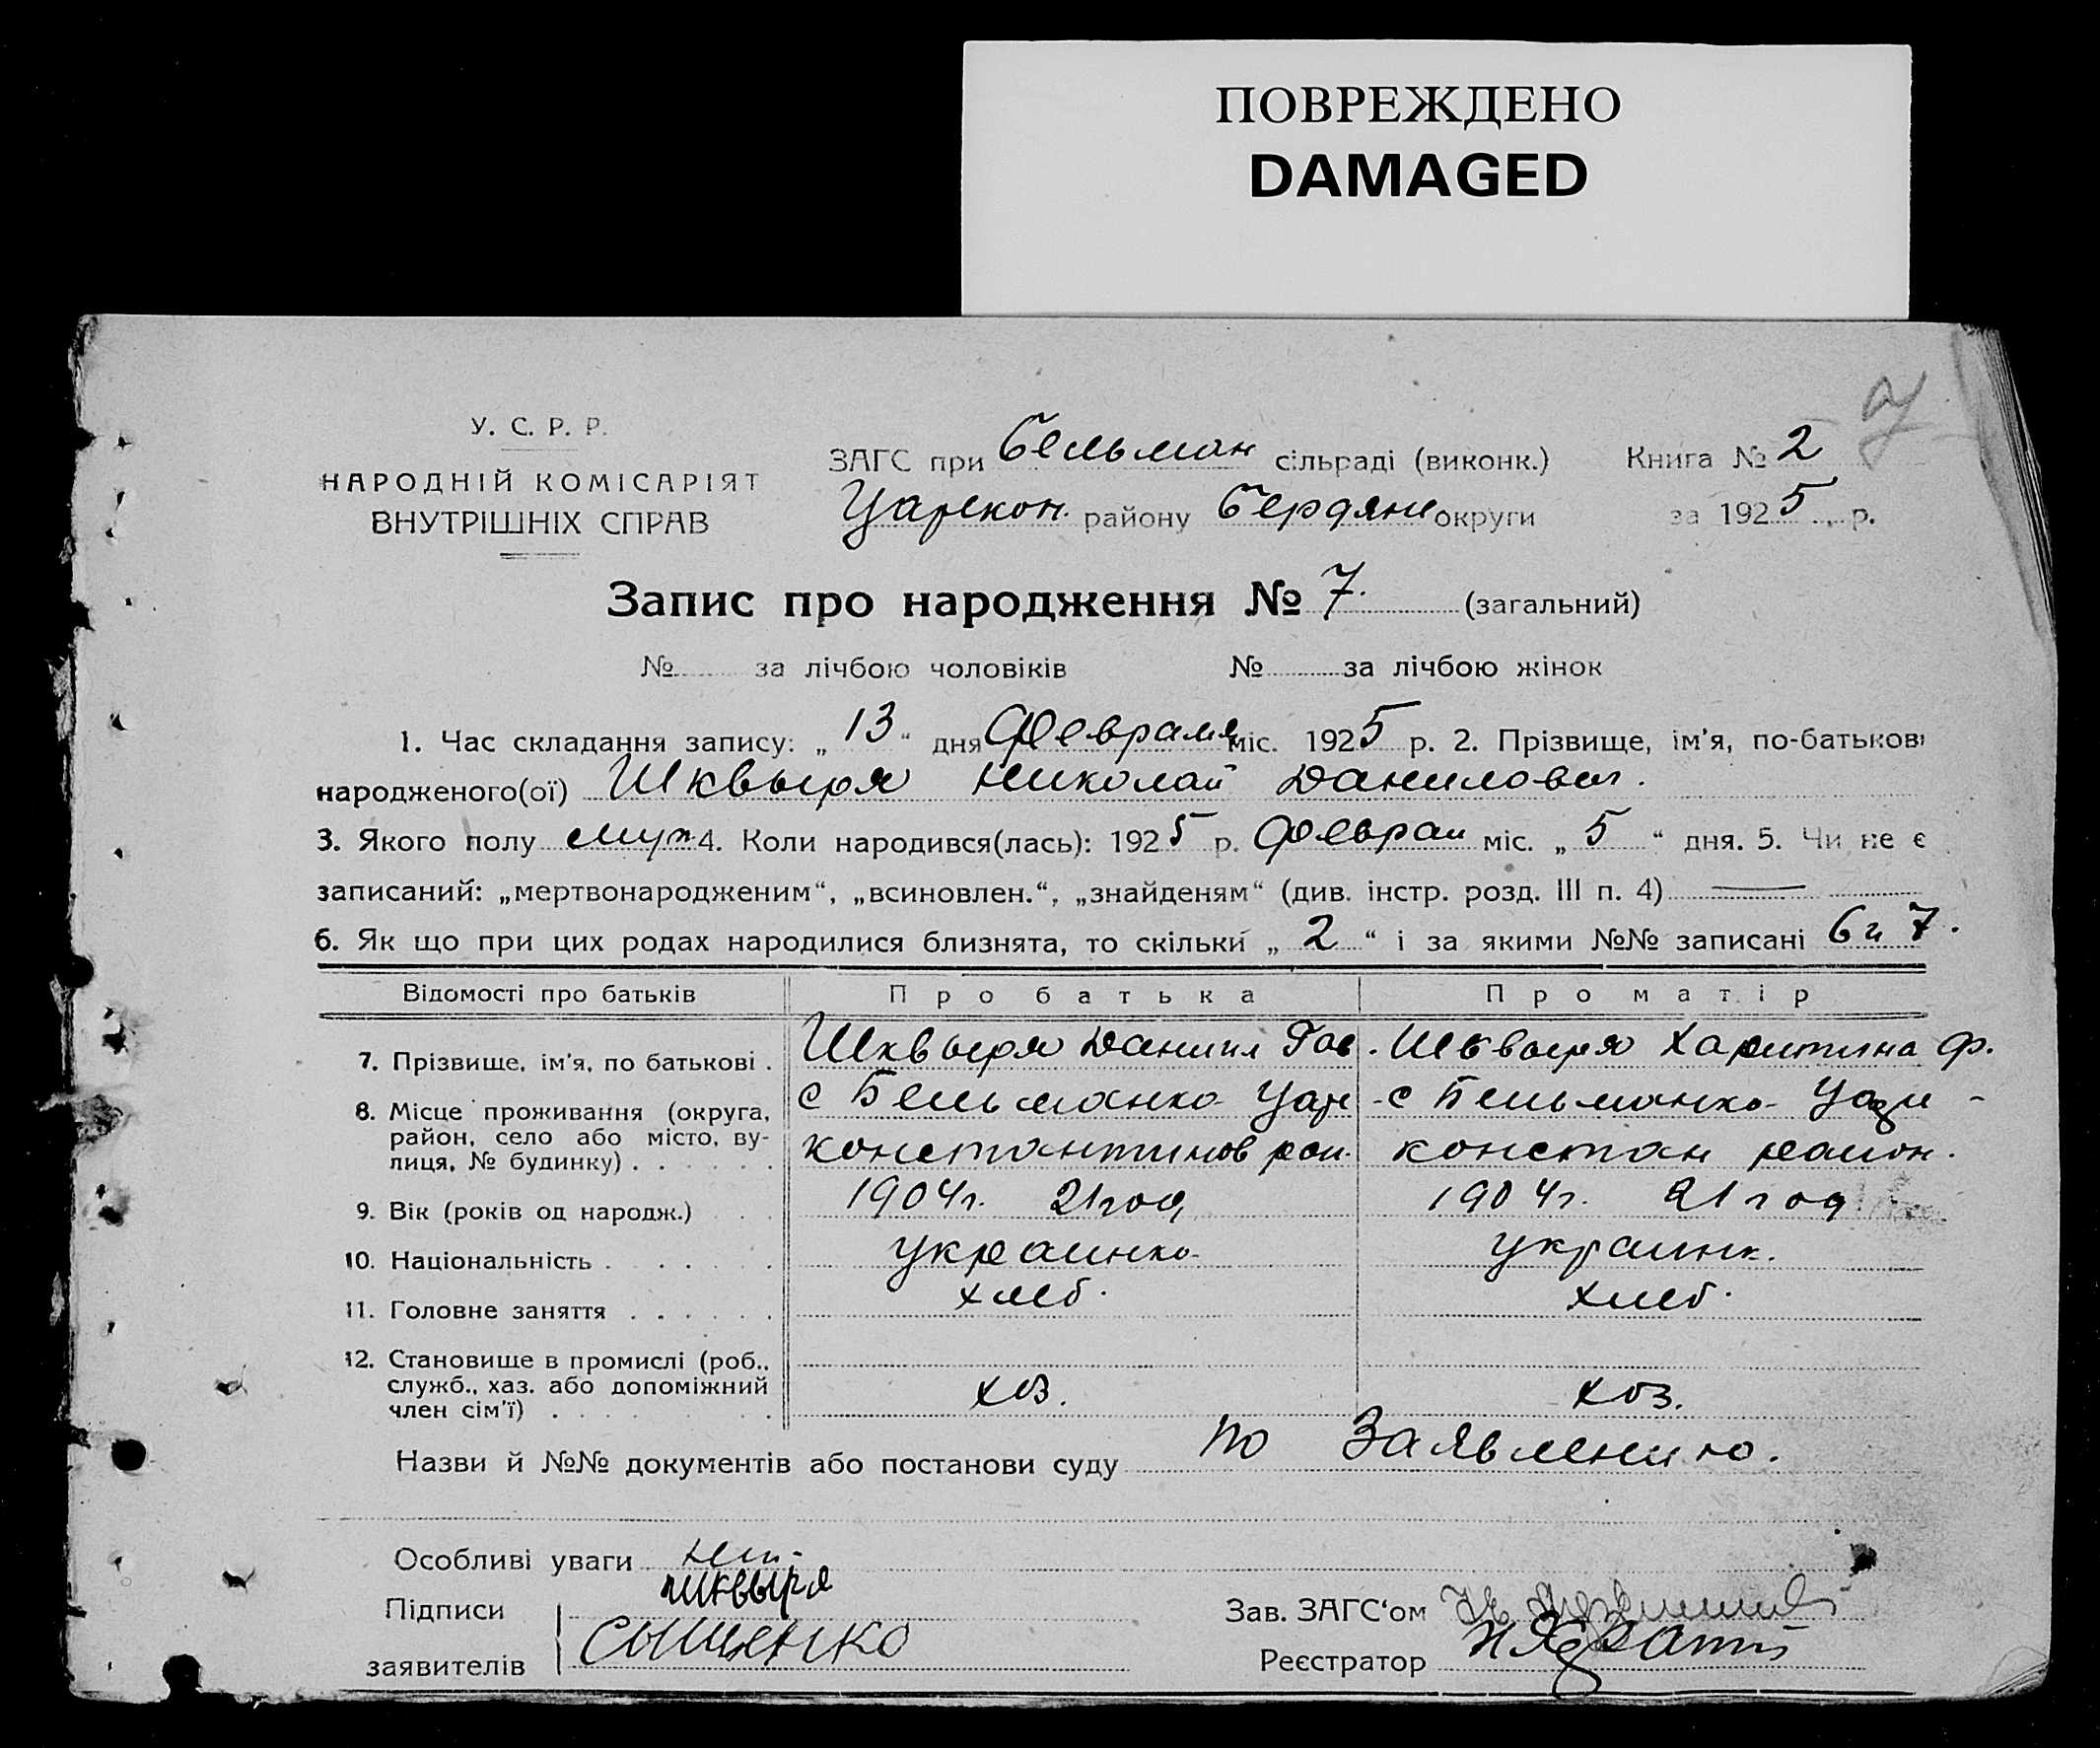 ПОВРЕЖДЕНО
DAMAGED
У. С. Р. Р.
НАРОДНІЙ КОМІСАРІЯТ
ВНУТРІШНІХ СПРАВ
ЗАГС при Бельман сільраді (виконк.) Книга № 2
Царекон. району Бердянс округи за 1925 р.
Запис про народження № 7. (загальний)
№ за лічбою чоловіків № за лічбою жінок
1. Час складання запису: „13“ дня Февраля міс. 1925 р. 2. Прізвище, ім'я, по-батькові
народженого(ої) Шквыря Николай Данилович.
3. Якого полу муж 4. Коли народився(лась): 1925 р. Феврал міс. „5“ дня. 5. Чи не є
записаний: „мертвонародженим“, „всиновлен.“, „знайденям“ (див. інстр. розд. III п. 4) —
6. Як що при цих родах народилися близнята, то скільки „2“ і за якими №№ записані 6 и 7.
Відомості про батьків Про батька Про матір
7. Прізвище, ім'я, по батькові . Шквыря Даниил Гав. Шквыря Харитина Ф.
8. Місце проживання (округа, с Бельманка Цар - с Бельманка
район, село або місто, ву-
лиця, № будинку) . константинов рай. констан район.
9. Вік (років од народж.) 1904г. 21 год 1904г. 21 год
10. Національність . украинка украинк.
11. Головне заняття . хлеб. хлеб.
12. Становище в промислі (роб.,
служб., хаз. або допоміжний
член сім'ї) . хоз. хоз.
Назви й №№ документів або постанови суду по Заявлению.
Особливі уваги нет.
Підписи Шквыря Зав. ЗАГС'ом
заявителів Сыщенко Реєстратор